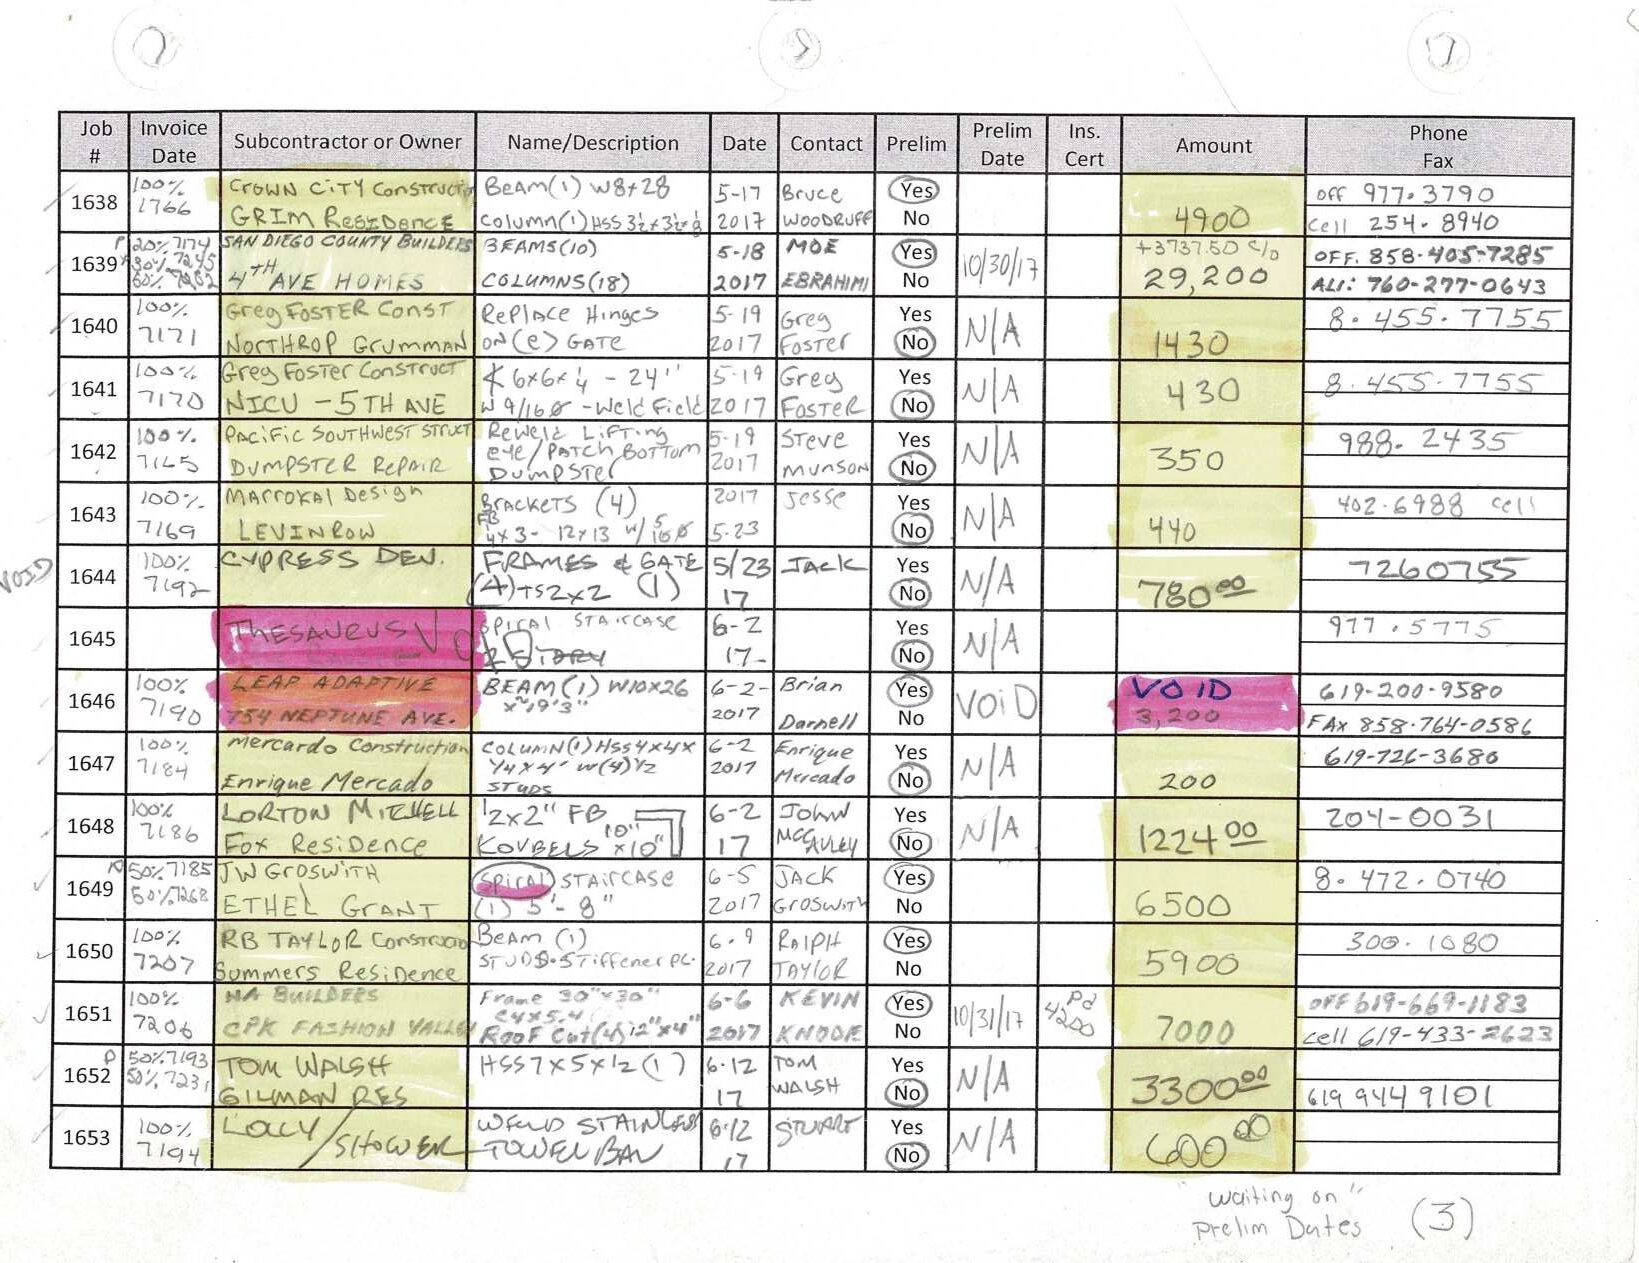 Job # Invoice Date Subcontractor or Owner Name/Description Date Contact Prelim Prelim Date Ins. Cert Amount Phone Fax
1638 100% 1766 CROWN CITY Constructio GRIM Residence Beam(1) W8+28 Column(1) HSS 5-17 2017 Bruce WOODRUFF Yes No 4900 off 977.3790 cell 254.8940
1639 P 20% 7174 30% 7245 50% 7252 SAN DIEGO COUNTY BUILDERS 4TH AVE HOMES BEAMS(10) COLUMNS(18) 5-18 2017 MOE EBRAHIMI Yes No 10/30/17 +3737.50 c/o 29,200 OFF. 858-405-7285 ALI: 760-277-0643
1640 100% 7171 Greg FOSTER Const NORTHROP Grumman Replace Hinges ON (e) GATE 5-19 2017 Greg Foster Yes No N/A 1430 8.455.7755
1641 100% 7170 Greg Foster Construct NICU - 5TH AVE 6x6x¼ - 24" W 9/16 Ø - Weld Field 5-19 2017 Greg FOSTER Yes No N/A 430 8.455.7755
1642 100% 7165 Pacific Southwest Struct DUMPSTER RePAIR Reweld Lifting eye/PATCH BOTTOM DUMPSTer 5-19 2017 Steve MUNSON Yes No N/A 350 988.2435
1643 100% 7169 Marrokal Design LEVINROW Brackets (4) FB 4x3- 12x13 w/ 5/16 Ø 2017 5-23 Jesse Yes No N/A 440 402.6988 cell
VOID 1644 100% 7192 CYPRESS DEV. FRAMES & GATE (4) TS2x2 (1) 5/23 17 JACK Yes No N/A 780.00 7260755
1645 THESAUEUS VOID SPIRAL STAIRCASE 6-2 17- Yes No N/A 977.5775
1646 100% 7190 LEAP ADAPTIVE 754 NEPTUNE AVE. BEAM (1) W10x26 x~19'3" 6-2- 2017 Brian Darnell Yes No VOID VOID 3,200 619-200-9580 FAX 858-764-0586
1647 100% 7184 Mercardo Construction Enrique Mercado COLUMN(1) HSS4x4x ¼x4' w(4)½ STUDS 6-2 2017 Enrique Mercado Yes No N/A 200 619-726-3680
1648 100% 7186 LORTON MITCHELL Fox Residence ½x2" FB KOVBELS 10" x10" 6-2 17 JOHN McCAULEY Yes No N/A 1224.00 204-0031
1649 50% 7185 50% 7268 JW GROSWITH ETHEL GRANT Spiral STAIRCASE (1) 5'-8" 6-5 2017 JACK GROSWITH Yes No 6500 8.472.0740
1650 100% 7207 RB TAYLOR Constructio Summers Residence Beam (1) STUDS. Stiffener PL. 6.9 2017 RALPH TAYLOR Yes No 5900 300.1080
1651 100% 7206 NA BUILDERS CPK FASHION VALLEY Frame 30"x30" C4x5.4 ROOF Cut(4) 12"x4" 6-6 2017 KEVIN KNODE Yes No 10/31/17 Pd 4200 7000 off 619-669-1183 cell 619-433-2623
1652 P 50% 7193 50% 7231 TOM WALSH GILMAN RES HSS 7x5x½ (1) 6-12 17 TOM WALSH Yes No N/A 3300.00 619 944 9101
1653 100% 7194 LOLLY /SHOWER WELD STAINLESS TOWEL BAR 6-12 17 STUART Yes No N/A 600.00
"waiting on"
prelim Dates (3)